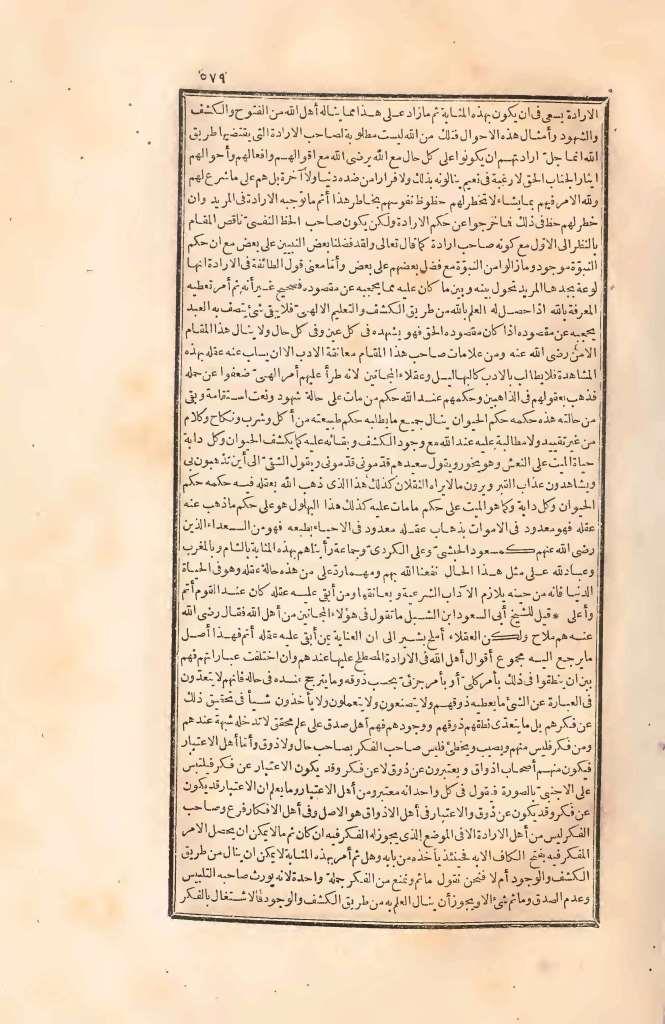 ٥٧٩
الارادة يسعى فى ان يكون بهذه المثابة ثم مازاد على هذا مما يناله أهل الله من الفتوح والكشف
والشهود وأمثال هذه الاحوال فتلك من الله ليست مطلوبة لصاحب الارادة التى يقتضيها طريق
الله انما جل ارادتهم ان يكونوا على كل حال مع الله يرضى الله مع اقوالهم وافعالهم وأحوالهم
ايثارا لجناب الحق لا رغبة فى نعيم ينالونه بذلك ولا فرارا من ضده دنيا ولا آخرة بل هم على ما شرع لهم
ولله الامر فيهم بما يشاء لا تخطر لهم حظوظ نفوسهم بخاطر هذا أتم ما توجبه الارادة فى المريد وان
خطر لهم حظ فى ذلك فما خرجوا عن حكم الارادة ولكن يكون صاحب الحظ النفسى ناقص المقام
بالنظر الى الاول مع كونه صاحب ارادة كما قال تعالى ولقد فضلنا بعض النبيين على بعض مع ان حكم
النبوّة موجود وما زالوا من النبوّة مع فضل بعضهم على بعض وأما معنى قول الطائفة فى الارادة انها
لوعة يجدها المريد تحول بينه وبين ما كان عليه مما يحجبه عن مقصوده فصحيح غير أنه ثم أمر تعطيه
المعرفة بالله اذا حصل له العلم بالله من طريق الكشف والتعليم الالهى فلا يبقى شئ يتصف به العبد
يحجبه عن مقصوده اذا كان مقصوده الحق فهو يشهده فى كل عين وفى كل حال ولا ينال هذا المقام
الا من رضى الله عنه ومن علامات صاحب هذا المقام معانقة الادب الا ان يسلب عنه عقله بهذه
المشاهدة فلا يطالب بالادب كالبهاليل وعقلاء المجانين لانه طرأ عليهم أمر الهى ضعفوا عن حمله
فذهب بعقولهم فى الذاهبين وحكمهم عند الله حكم من مات على حالة شهود ونعت استقامة وبقى
من حالته هذه حكمه حكم الحيوان ينال جميع ما يطلبه حكم طبيعته من أكل وشرب ونكاح وكلام
من غير تقييد ولا مطالبة عليه عند الله مع وجود الكشف وبقائه عليه كما يكشف الحيوان وكل دابة
حياة الميت على النعش وهو يخور ويقول سعيدهم قدّمونى قدّمونى ويقول الشقى الى أين تذهبون بى
ويشاهدون عذاب القبر ويرون ما لا يراه الثقلان كذلك هذا الذى ذهب الله بعقله فيه حكمه حكم
الحيوان وكل دابة وكما هو الميت على حكم ما مات عليه كذلك هذا البهلول هو على حكم ما ذهب عنه
عقله فهو معدود فى الاموات بذهاب عقله معدود فى الاحياء بطبعه فهو من السعداء الذين
رضى الله عنهم كمسعود الحبشى وعلى الكردى وجماعة رأيناهم بهذه المثابة بالشام وبالمغرب
وعباد لله على مثل هذا الحال نفعنا الله بهم ومهما رد على من هذه حالة عقله وهو فى الحياة
الدنيا فانه من حينه يلازم الآداب الشرعية ويعانقها ومن أبقى عليه عقله كان عند القوم أتم
وأعلى * قيل للشيخ أبى السعود ابن الشبل ما تقول فى هؤلاء المجانين من أهل الله فقال رضى الله
عنه هم ملاح ولكن العقلاء أملح يشير الى ان العناية بمن أبقى عليه عقله أتم فهذا أصل
ما يرجع اليه مجموع أقوال أهل الله فى الارادة المصطلح عليها عندهم وان اختلفت عباراتهم فهم
بين ان ينطقوا فى ذلك بأمر كلى أو بأمر جزئى بحسب ذوقه وما يترجح عنده فى حاله فانهم لا يتعدّون
فى العبارة عن الشئ ما يعطيه ذوقهم ولا يتصنعون ولا يتعملون ولا يأخذون شيأ فى تحقيق ذلك
عن فكرهم بل ما يتعدى نطقهم ذوقهم ووجودهم فهم أهل صدق على علم محقق لا تدخله شبهة عندهم
ومن فكر فليس منهم ويصيب ويخطئ فليس صاحب الفكر بصاحب حال ولا ذوق وأما أهل الاعتبار
فيكون منهم أصحاب اذواق ويعتبرون عن ذوق لا عن فكر وقد يكون الاعتبار عن فكر فيلتبس
على الاجنبى بالصورة فيقول فى كل واحد انه معتبر ومن أهل الاعتبار وما يعلم ان الاعتبار قد يكون
عن فكر وقد يكون عن ذوق والاعتبار فى أهل الاذواق هو الاصل وفى أهل الافكار فرع وصاحب
الفكر ليس من أهل الارادة الا فى الموضع الذى يجوز له الفكر فيه ان كان ثم ما لا يمكن ان يحصل الامر
المفكر فيه بفتح الكاف الا به فحينئذ يأخذه من بابه وهل ثم أمر بهذه المثابة لا يمكن ان ينال من طريق
الكشف والوجود أم لا فنحن نقول ما ثم ونمنع من الفكر جملة واحدة لانه يورث صاحبه التلبيس
وعدم الصدق وما ثم شئ الا ويجوز أن ينال العلم به من طريق الكشف والوجود فالاشتغال بالفكر